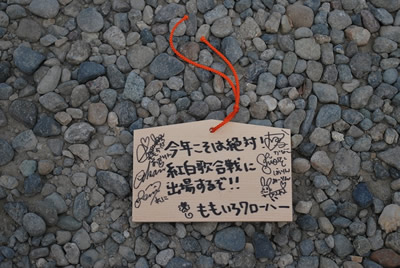 今年こそは絶対
紅白歌合戦に
出場するぞ!!
ももいろクローバー